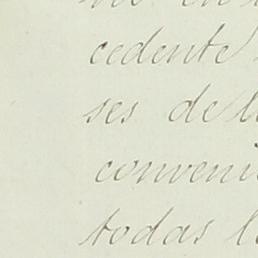 cedente
ses de l
conveni
todas l